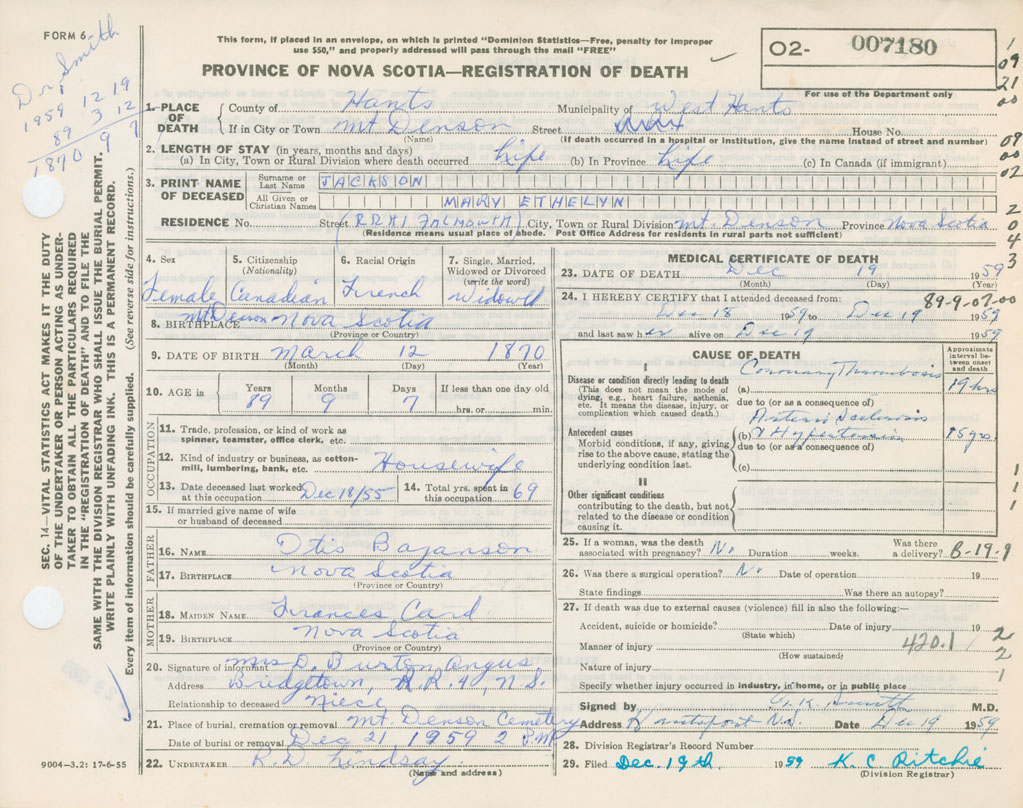 FORM 6
This form, if placed in an envelope, on which is printed "Dominion Statistics—Free, penalty for improper
use $50," and properly addressed will pass through the mail "FREE"
PROVINCE OF NOVA SCOTIA—REGISTRATION OF DEATH
O2- 007180
For use of the Department only
Dr. Smith
1959 12 19
89 3 12
1870 9 7
1
09
21
00
09
00
02
2
0
4
3
1.-PLACE OF DEATH
County of Hants Municipality of West Hants
If in City or Town Mt Denson Street House No.
(Name) (If death occurred in a hospital or institution, give the name instead of street and number)
2. LENGTH OF STAY (in years, months and days)
(a) In City, Town or Rural Division where death occurred Life (b) In Province Life (c) In Canada (if immigrant)
3. PRINT NAME OF DECEASED
Surname or Last Name JACKSON
All Given or Christian Names MARY ETHELYN
RESIDENCE No. Street (RR#1 FALMOUTH) City, Town or Rural Division Mt. Denson Province Nova Scotia
(Residence means usual place of abode. Post Office Address for residents in rural parts not sufficient)
4. Sex Female
5. Citizenship (Nationality) Canadian
6. Racial Origin French
7. Single, Married, Widowed or Divorced (write the word) Widowed
8. BIRTHPLACE Mt Denson Nova Scotia
(Province or Country)
9. DATE OF BIRTH March 12 1870
(Month) (Day) (Year)
10. AGE in Years 89 Months 9 Days 7 If less than one day old hrs. or min.
OCCUPATION
11. Trade, profession, or kind of work as spinner, teamster, office clerk, etc.
12. Kind of industry or business, as cotton-mill, lumbering, bank, etc. Housewife
13. Date deceased last worked at this occupation Dec 18/55 14. Total yrs. spent in this occupation 69
15. If married give name of wife or husband of deceased
FATHER
16. NAME Otis Bazanson
17. BIRTHPLACE Nova Scotia
(Province or Country)
MOTHER
18. MAIDEN NAME Frances Card
19. BIRTHPLACE Nova Scotia
(Province or Country)
20. Signature of informant Mrs D. Burton Angus
Address Bridgetown, R.R.4, N.S.
Relationship to deceased Niece
21. Place of burial, cremation or removal Mt Denson Cemetery
Date of burial or removal Dec 21 1959 2 P.M
22. UNDERTAKER R.D. Lindsay
(Name and address)
9004—3.2: 17-6-55
SEC. 14—VITAL STATISTICS ACT MAKES IT THE DUTY
OF THE UNDERTAKER OR PERSON ACTING AS UNDER-
TAKER TO OBTAIN ALL THE PARTICULARS REQUIRED
IN THE "REGISTRATION OF DEATH" AND TO FILE THE
SAME WITH THE DIVISION REGISTRAR WHO SHALL ISSUE THE BURIAL PERMIT.
WRITE PLAINLY WITH UNFADING INK. THIS IS A PERMANENT RECORD.
Every item of information should be carefully supplied. (See reverse side for instructions.)
MEDICAL CERTIFICATE OF DEATH
23. DATE OF DEATH Dec 19 1959
(Month) (Day) (Year)
24. I HEREBY CERTIFY that I attended deceased from: 89-9-07-00
Dec 18 1959 to Dec 19 1959
and last saw her alive on Dec 19 1959
CAUSE OF DEATH
Approximate interval between onset and death
I
Disease or condition directly leading to death
(This does not mean the mode of dying, e.g., heart failure, asthenia, etc. It means the disease, injury, or complication which caused death.)
(a) Coronary Thrombosis 19 hrs
due to (or as a consequence of)
Antecedent causes
Morbid conditions, if any, giving rise to the above cause, stating the underlying condition last.
(b) Arterio Sclerosis & Hypertension 15 yrs
due to (or as a consequence of)
(c)
II
Other significant conditions
contributing to the death, but not related to the disease or condition causing it.
1
1
1
25. If a woman, was the death associated with pregnancy? No Duration weeks. Was there a delivery? 8-19-9
26. Was there a surgical operation? No Date of operation 19
State findings Was there an autopsy?
27. If death was due to external causes (violence) fill in also the following:—
Accident, suicide or homicide? Date of injury 19
(State which)
Manner of injury 420.1
(How sustained)
Nature of injury
2
2
1
Specify whether injury occurred in industry, in home, or in public place
Signed by Smith M.D.
Address Hantsport N.S. Date Dec 19 1959
28. Division Registrar's Record Number
29. Filed Dec. 19th 1959 K. C. Ritchie
(Division Registrar)